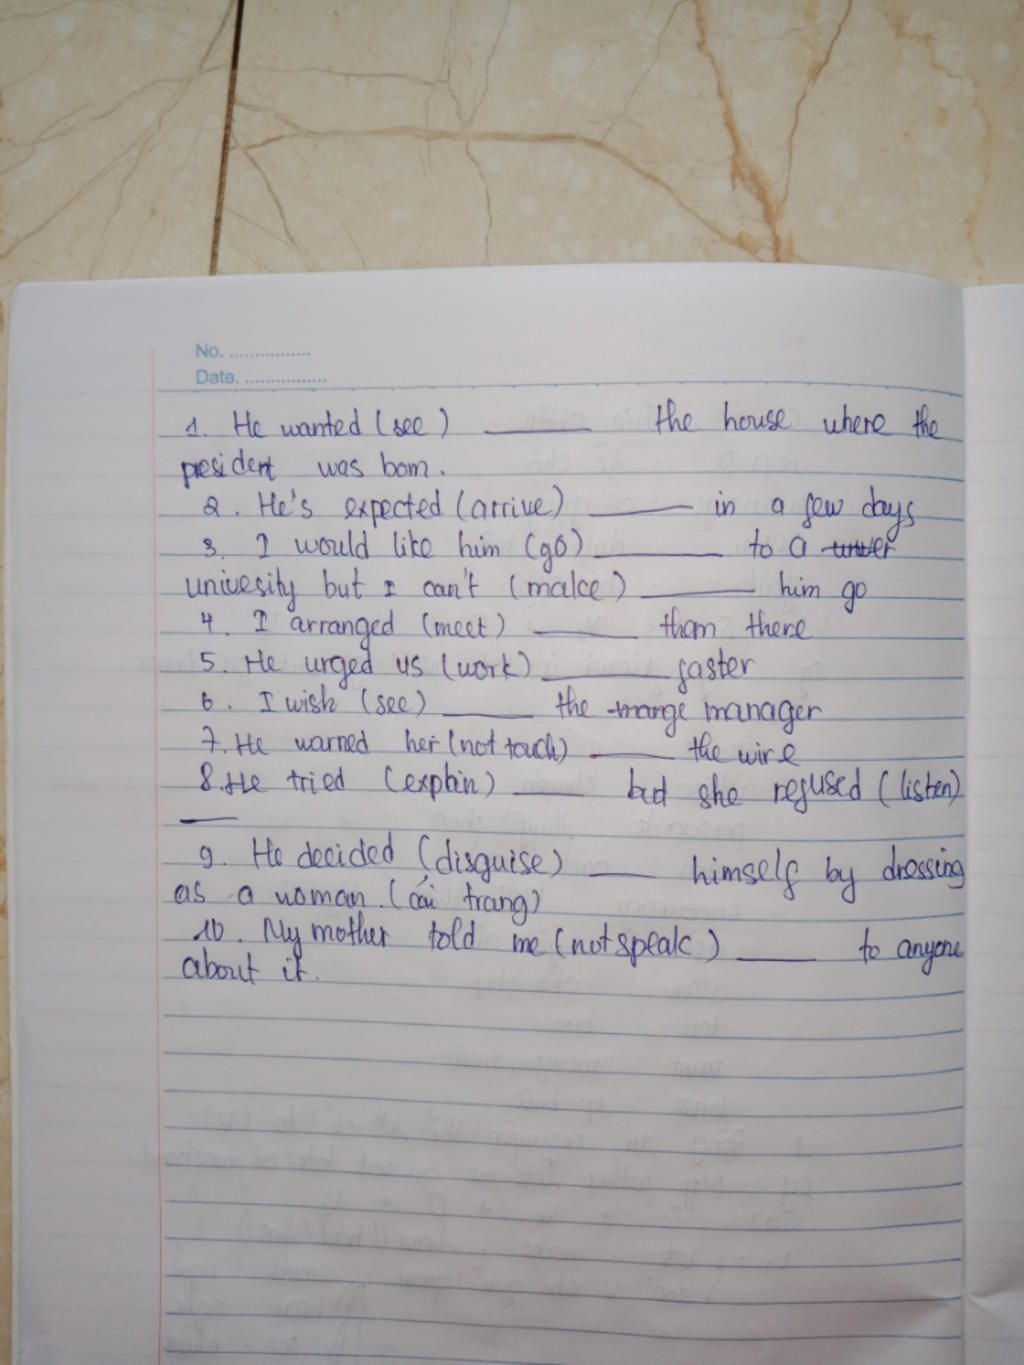 No. ................
Date. ................
1. He wanted (see) ______ the house where the
president was born.
2. He's expected (arrive) ______ in a few days
3. I would like him (go) ______ to a univer
univesity but I can't (make) ______ him go
4. I arranged (meet) ______ them there
5. He urged us (work) ______ faster
6. I wish (see) ______ the mange manager
7. He warned her (not touch) ______ the wire
8. He tried (explain) ______ but she refused (listen)
______
9. He decided (disguise) ______ himself by dressing
as a woman. (cải trang)
10. My mother told me (not speak) ______ to anyone
about it.